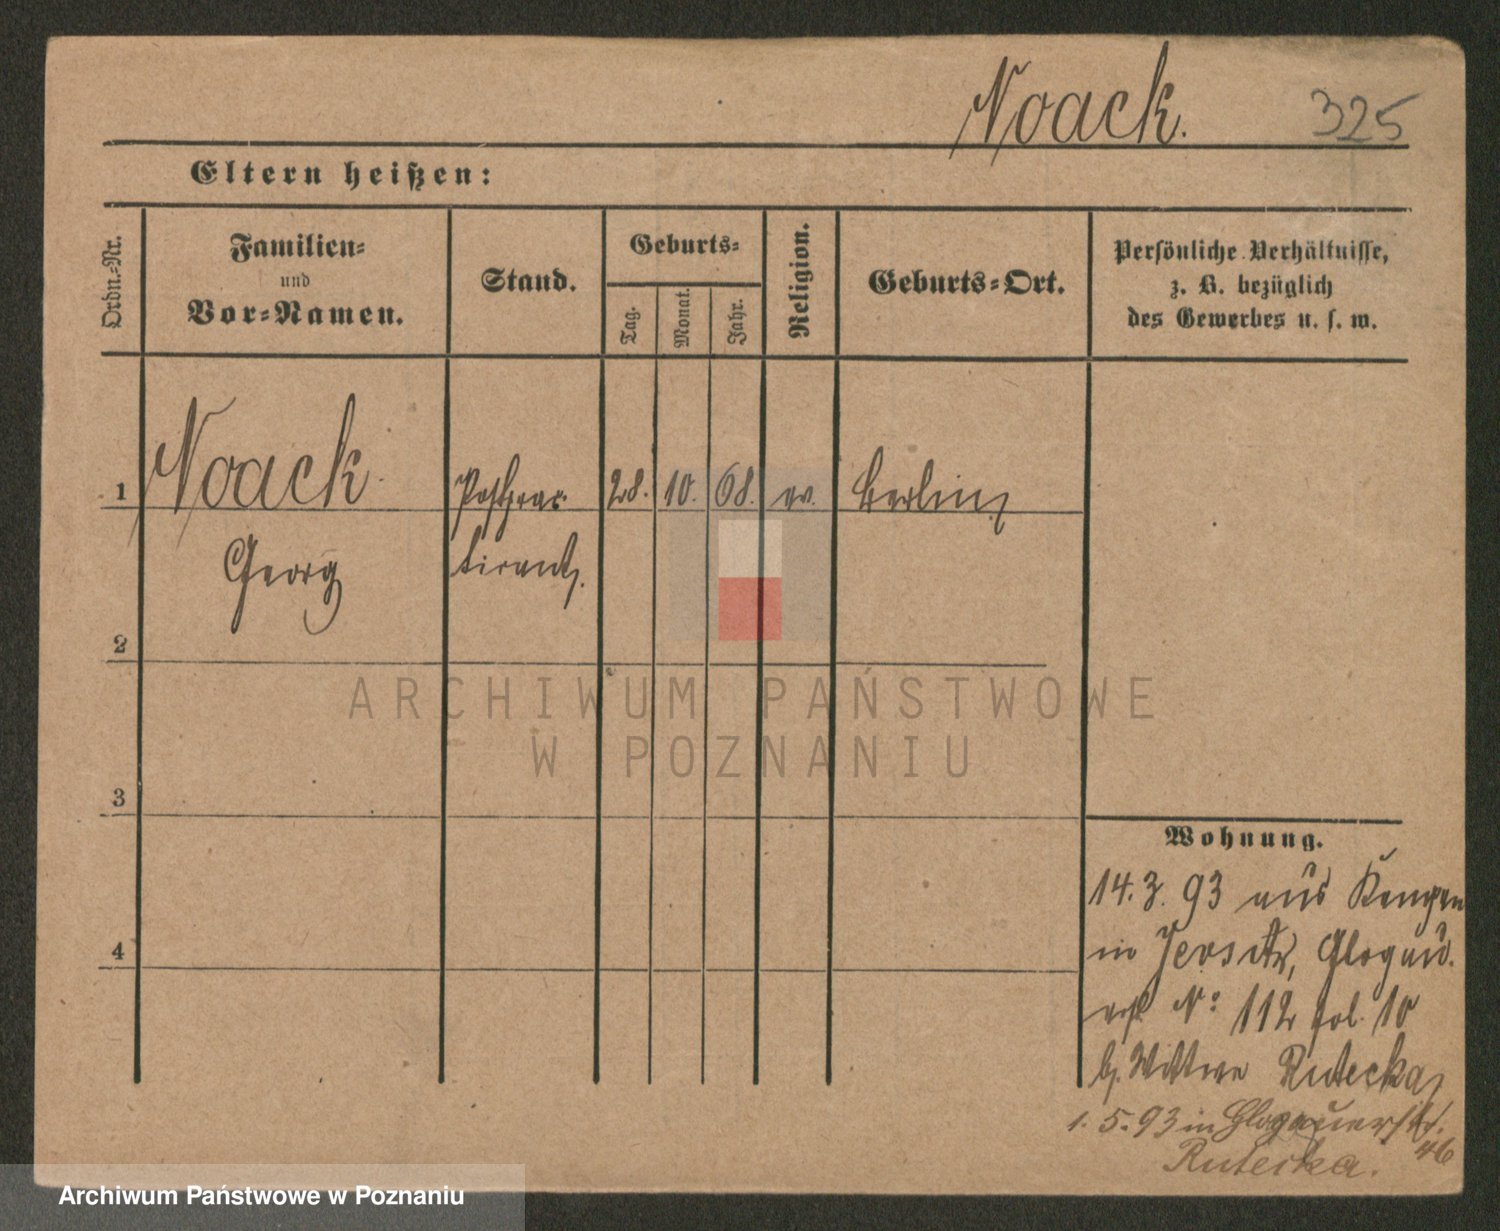 Noack. 325
Eltern heißen:
Ordn.-Nr.
Familien-
und
Vor-Namen.
Stand.
Geburts-
Tag.
Monat.
Jahr.
Religion.
Geburts-Ort.
Persönliche Verhältnisse,
z. B. bezüglich
des Gewerbes u. s. w.
1 Noack. 28. 10. 68. ev. Berlin
Georg
2
3
4
ARCHIWUM PAŃSTWOWE
W POZNANIU
Wohnung.
14. 3. 93 aus
in Jersitz, Glogau.
No 112 fol. 10
b. Wittwe Rutecka
1. 5. 93 in Glogauerstr.
46
Rutecka.
Archiwum Państwowe w Poznaniu